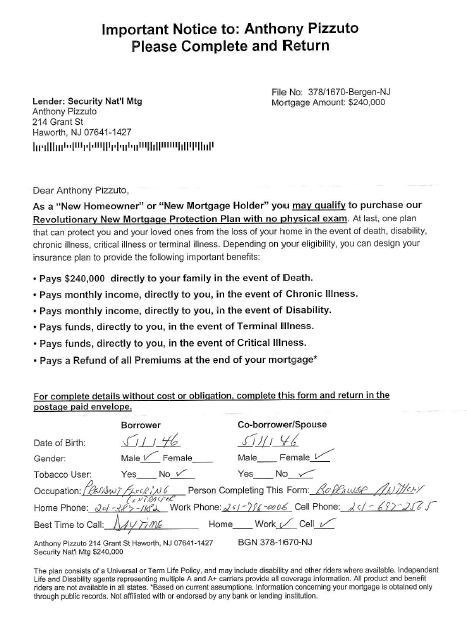 Important Notice to: Anthony Pizzuto
Please Complete and Return
File No: 378/1670-Bergen-NJ
Mortgage Amount: $240,000
Lender: Security Nat'l Mtg
Anthony Pizzuto
214 Grant St
Haworth, NJ 07641-1427
Dear Anthony Pizzuto,
As a "New Homeowner" or "New Mortgage Holder" you may qualify to purchase our
Revolutionary New Mortgage Protection Plan with no physical exam. At last, one plan
that can protect you and your loved ones from the loss of your home in the event of death, disability,
chronic illness, critical illness or terminal illness. Depending on your eligibility, you can design your
insurance plan to provide the following important benefits:
• Pays $240,000 directly to your family in the event of Death.
• Pays monthly income, directly to you, in the event of Chronic Illness.
• Pays monthly income, directly to you, in the event of Disability.
• Pays funds, directly to you, in the event of Terminal Illness.
• Pays funds, directly to you, in the event of Critical Illness.
• Pays a Refund of all Premiums at the end of your mortgage*
For complete details without cost or obligation, complete this form and return in the
postage paid envelope.
Borrower Co-borrower/Spouse
Date of Birth: 5/1/46 5/11/46
Gender: Male ✓ Female Male Female ✓
Tobacco User: Yes No ✓ Yes No ✓
Occupation: Person Completing This Form: Borrower Anthony
Home Phone: Work Phone: 201-796-0006 Cell Phone: 201-697-2585
Best Time to Call: DAYTIME Home Work ✓ Cell ✓
Anthony Pizzuto 214 Grant St Haworth, NJ 07641-1427 BGN 378-1670-NJ
Security Nat'l Mtg $240,000
The plan consists of a Universal or Term Life Policy, and may include disability and other riders where available. Independent
Life and Disability agents representing multiple A and A+ carriers provide all coverage information. All product and benefit
riders are not available in all states. *Based on current assumptions. Information concerning your mortgage is obtained only
through public records. Not affiliated with or endorsed by any bank or lending institution.